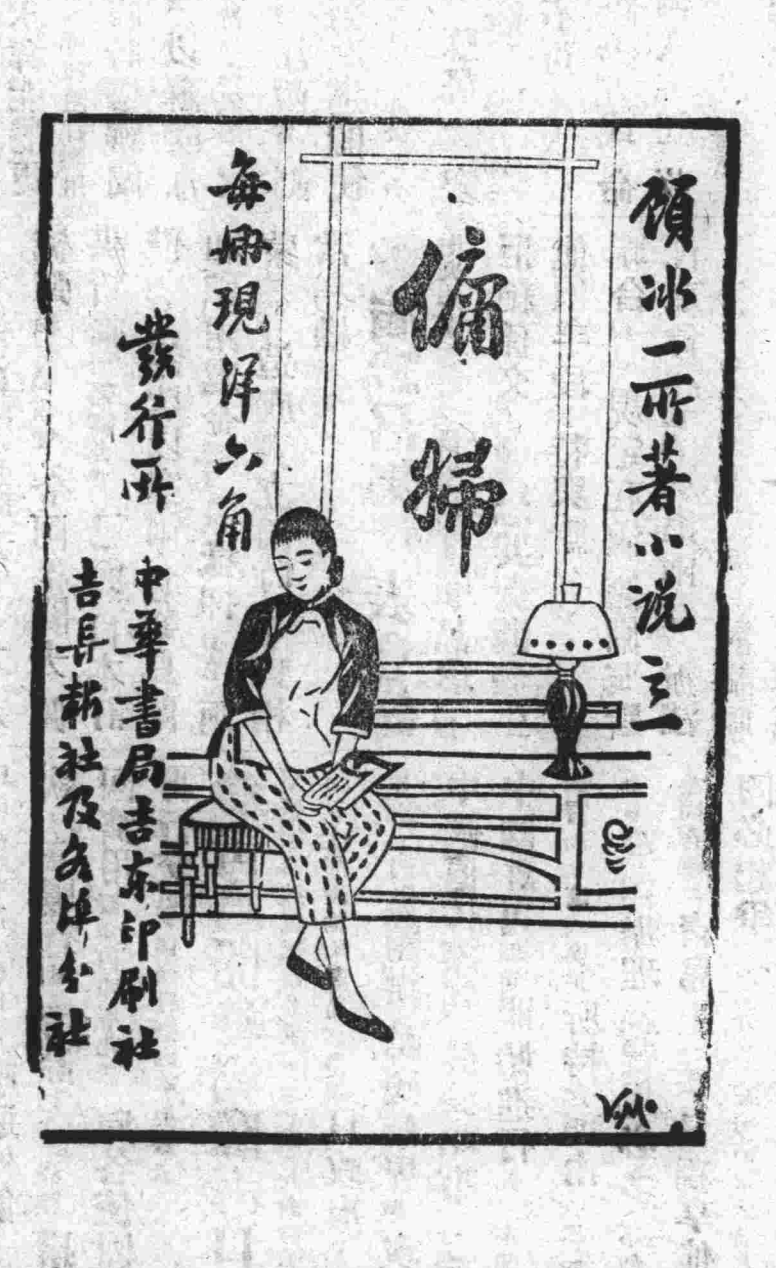 顧冰一所著小說之一
傭婦
每册現洋六角
發行所
中華書局吉東印刷社
吉長報社及各埠分社
V.M.